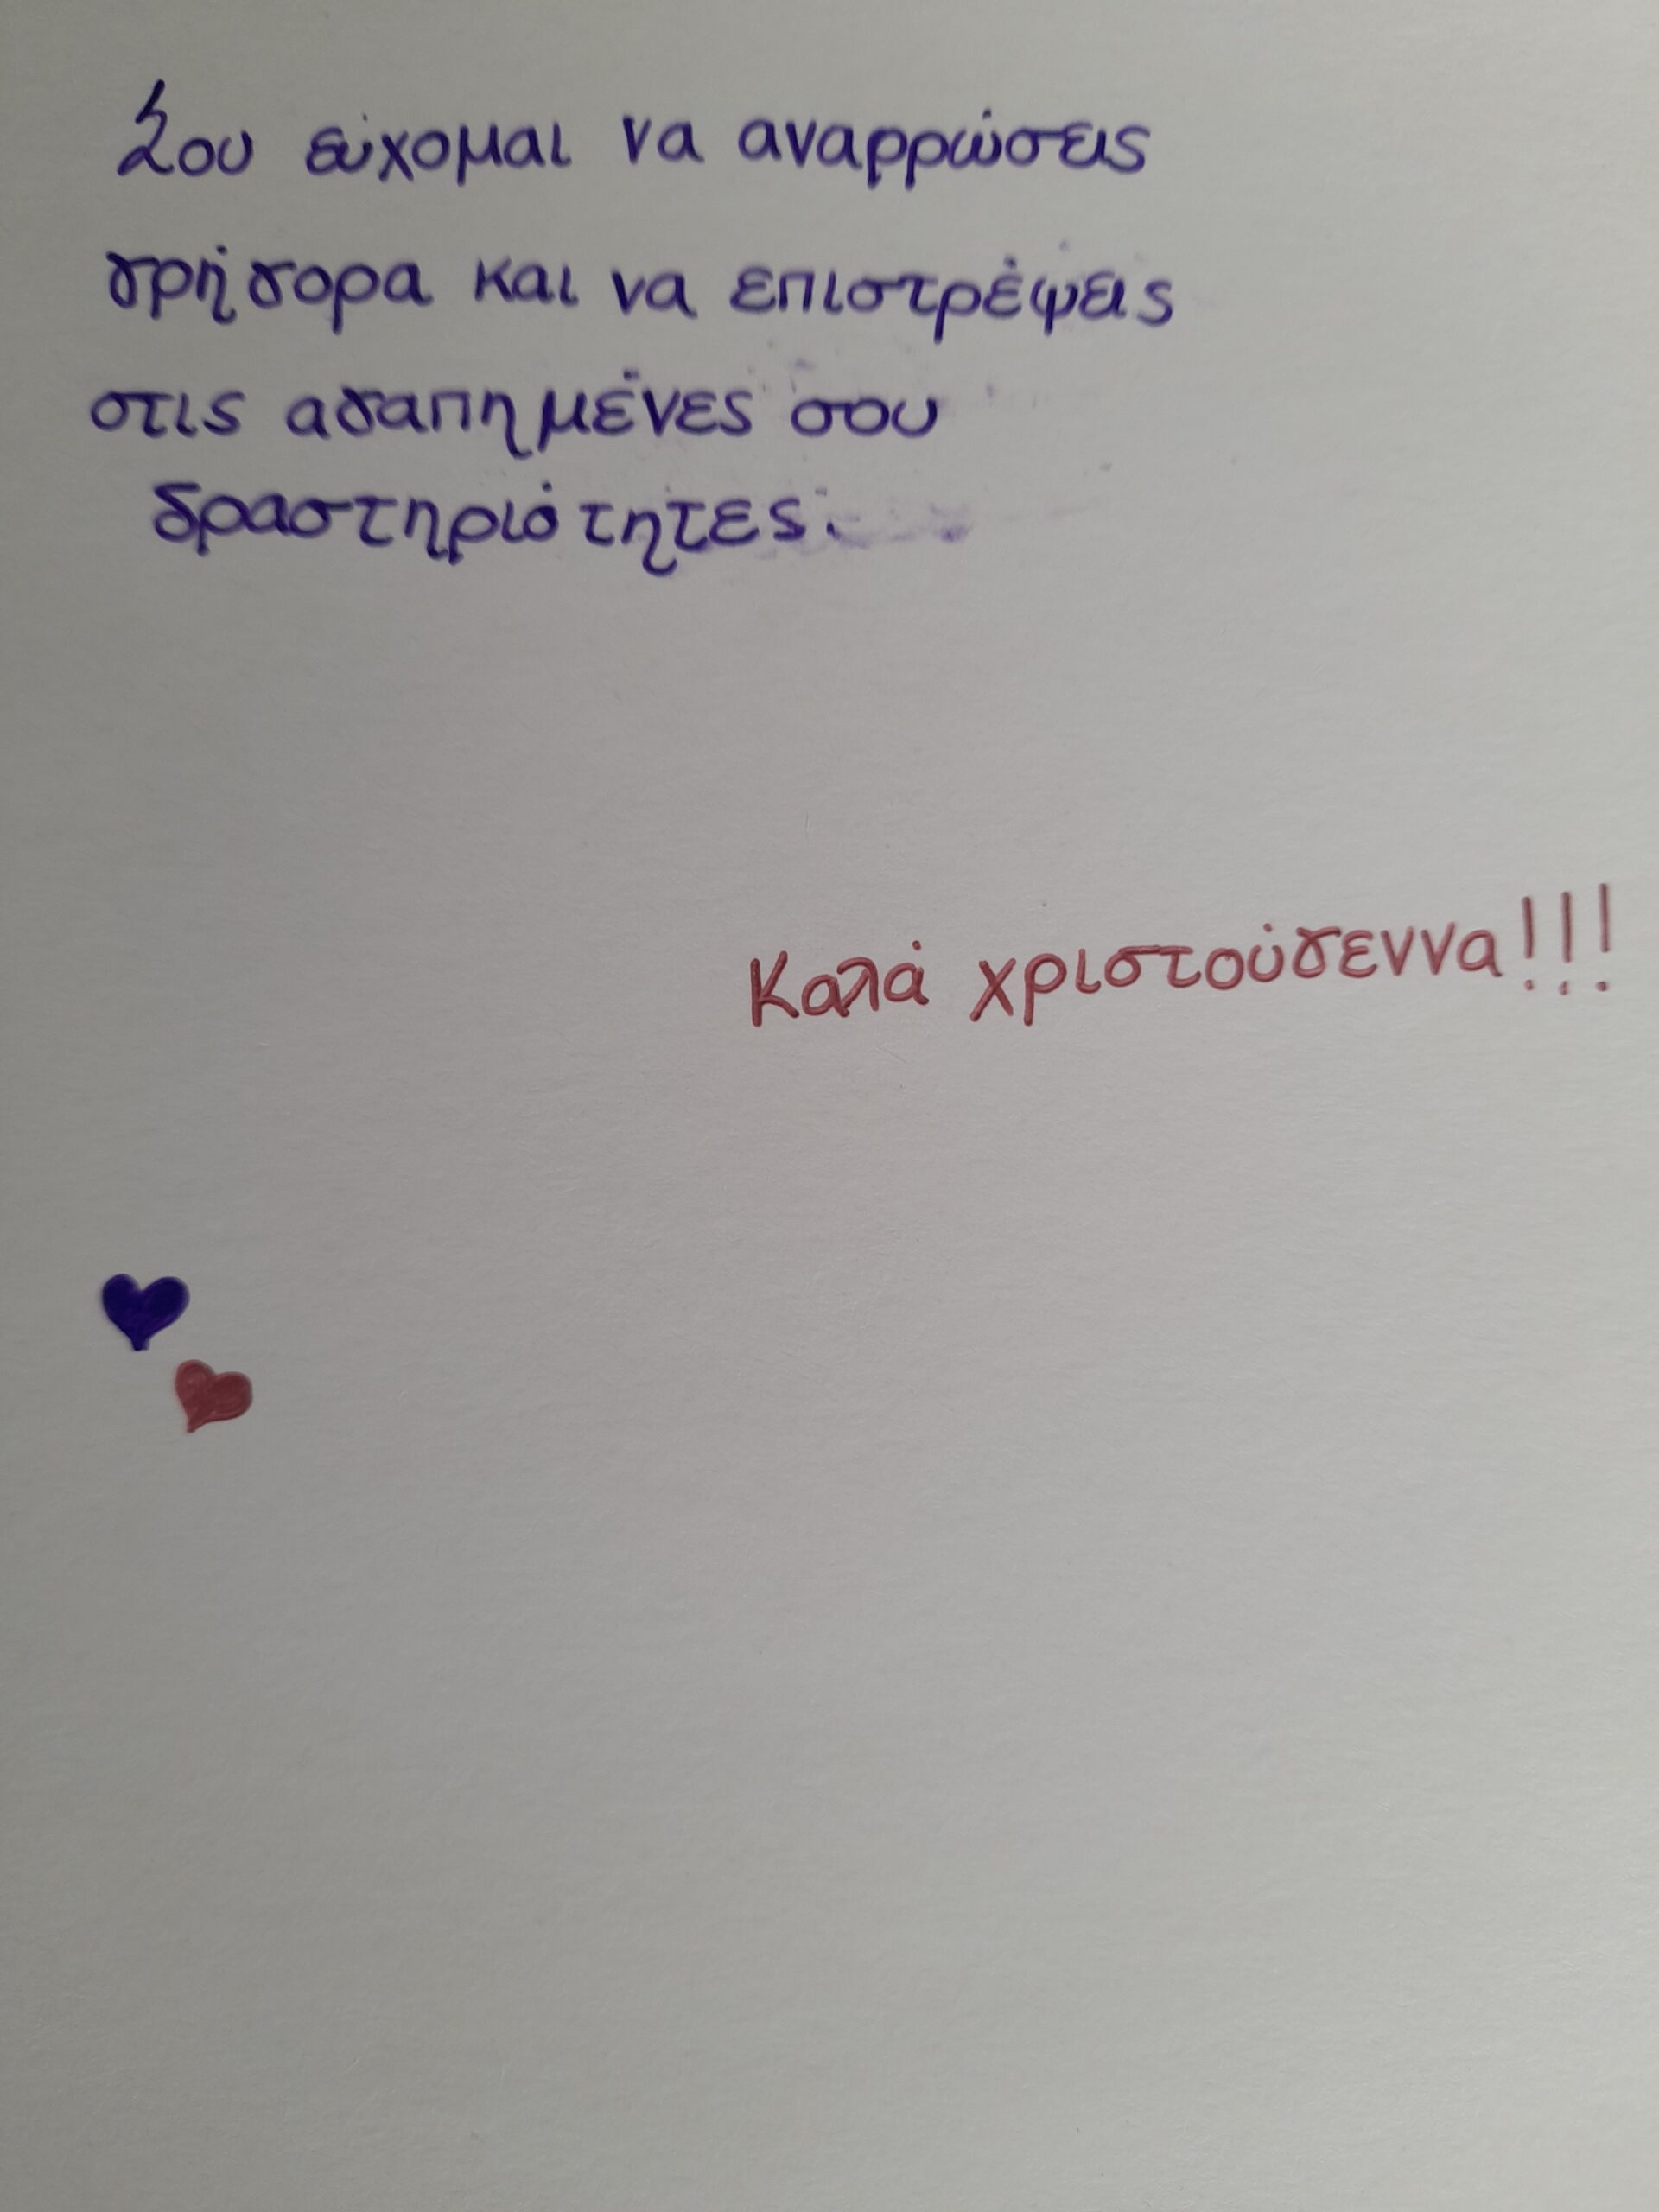 Σου εύχομαι να αναρρώσεις
γρήγορα και να επιστρέψεις
στις αγαπημένες σου
δραστηριότητες.
Καλά χριστούγεννα!!!